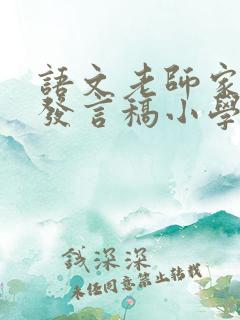 語文老師家
發言稿小學
錢深深
未經同意禁止轉載